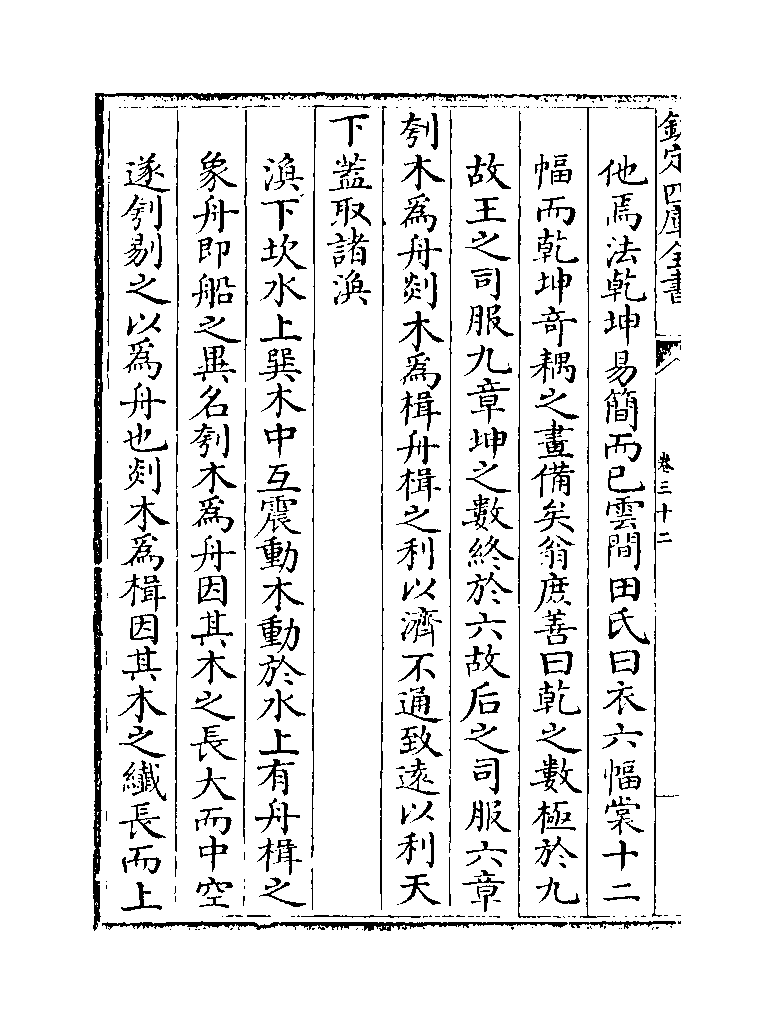 欽定四庫全書
卷三十二
他焉法乾坤易簡而已雲間田氏曰衣六幅裳十二
幅而乾坤奇耦之畫備矣翁庶善曰乾之數極於九
故王之司服九章坤之數終於六故后之司服六章
刳木為舟剡木為楫舟楫之利以濟不通致遠以利天
下蓋取諸渙
渙下坎水上巽木中互震動木動於水上有舟楫之
象舟即船之異名刳木為舟因其木之長大而中空
遂刳剔之以為舟也剡木為楫因其木之纖長而上